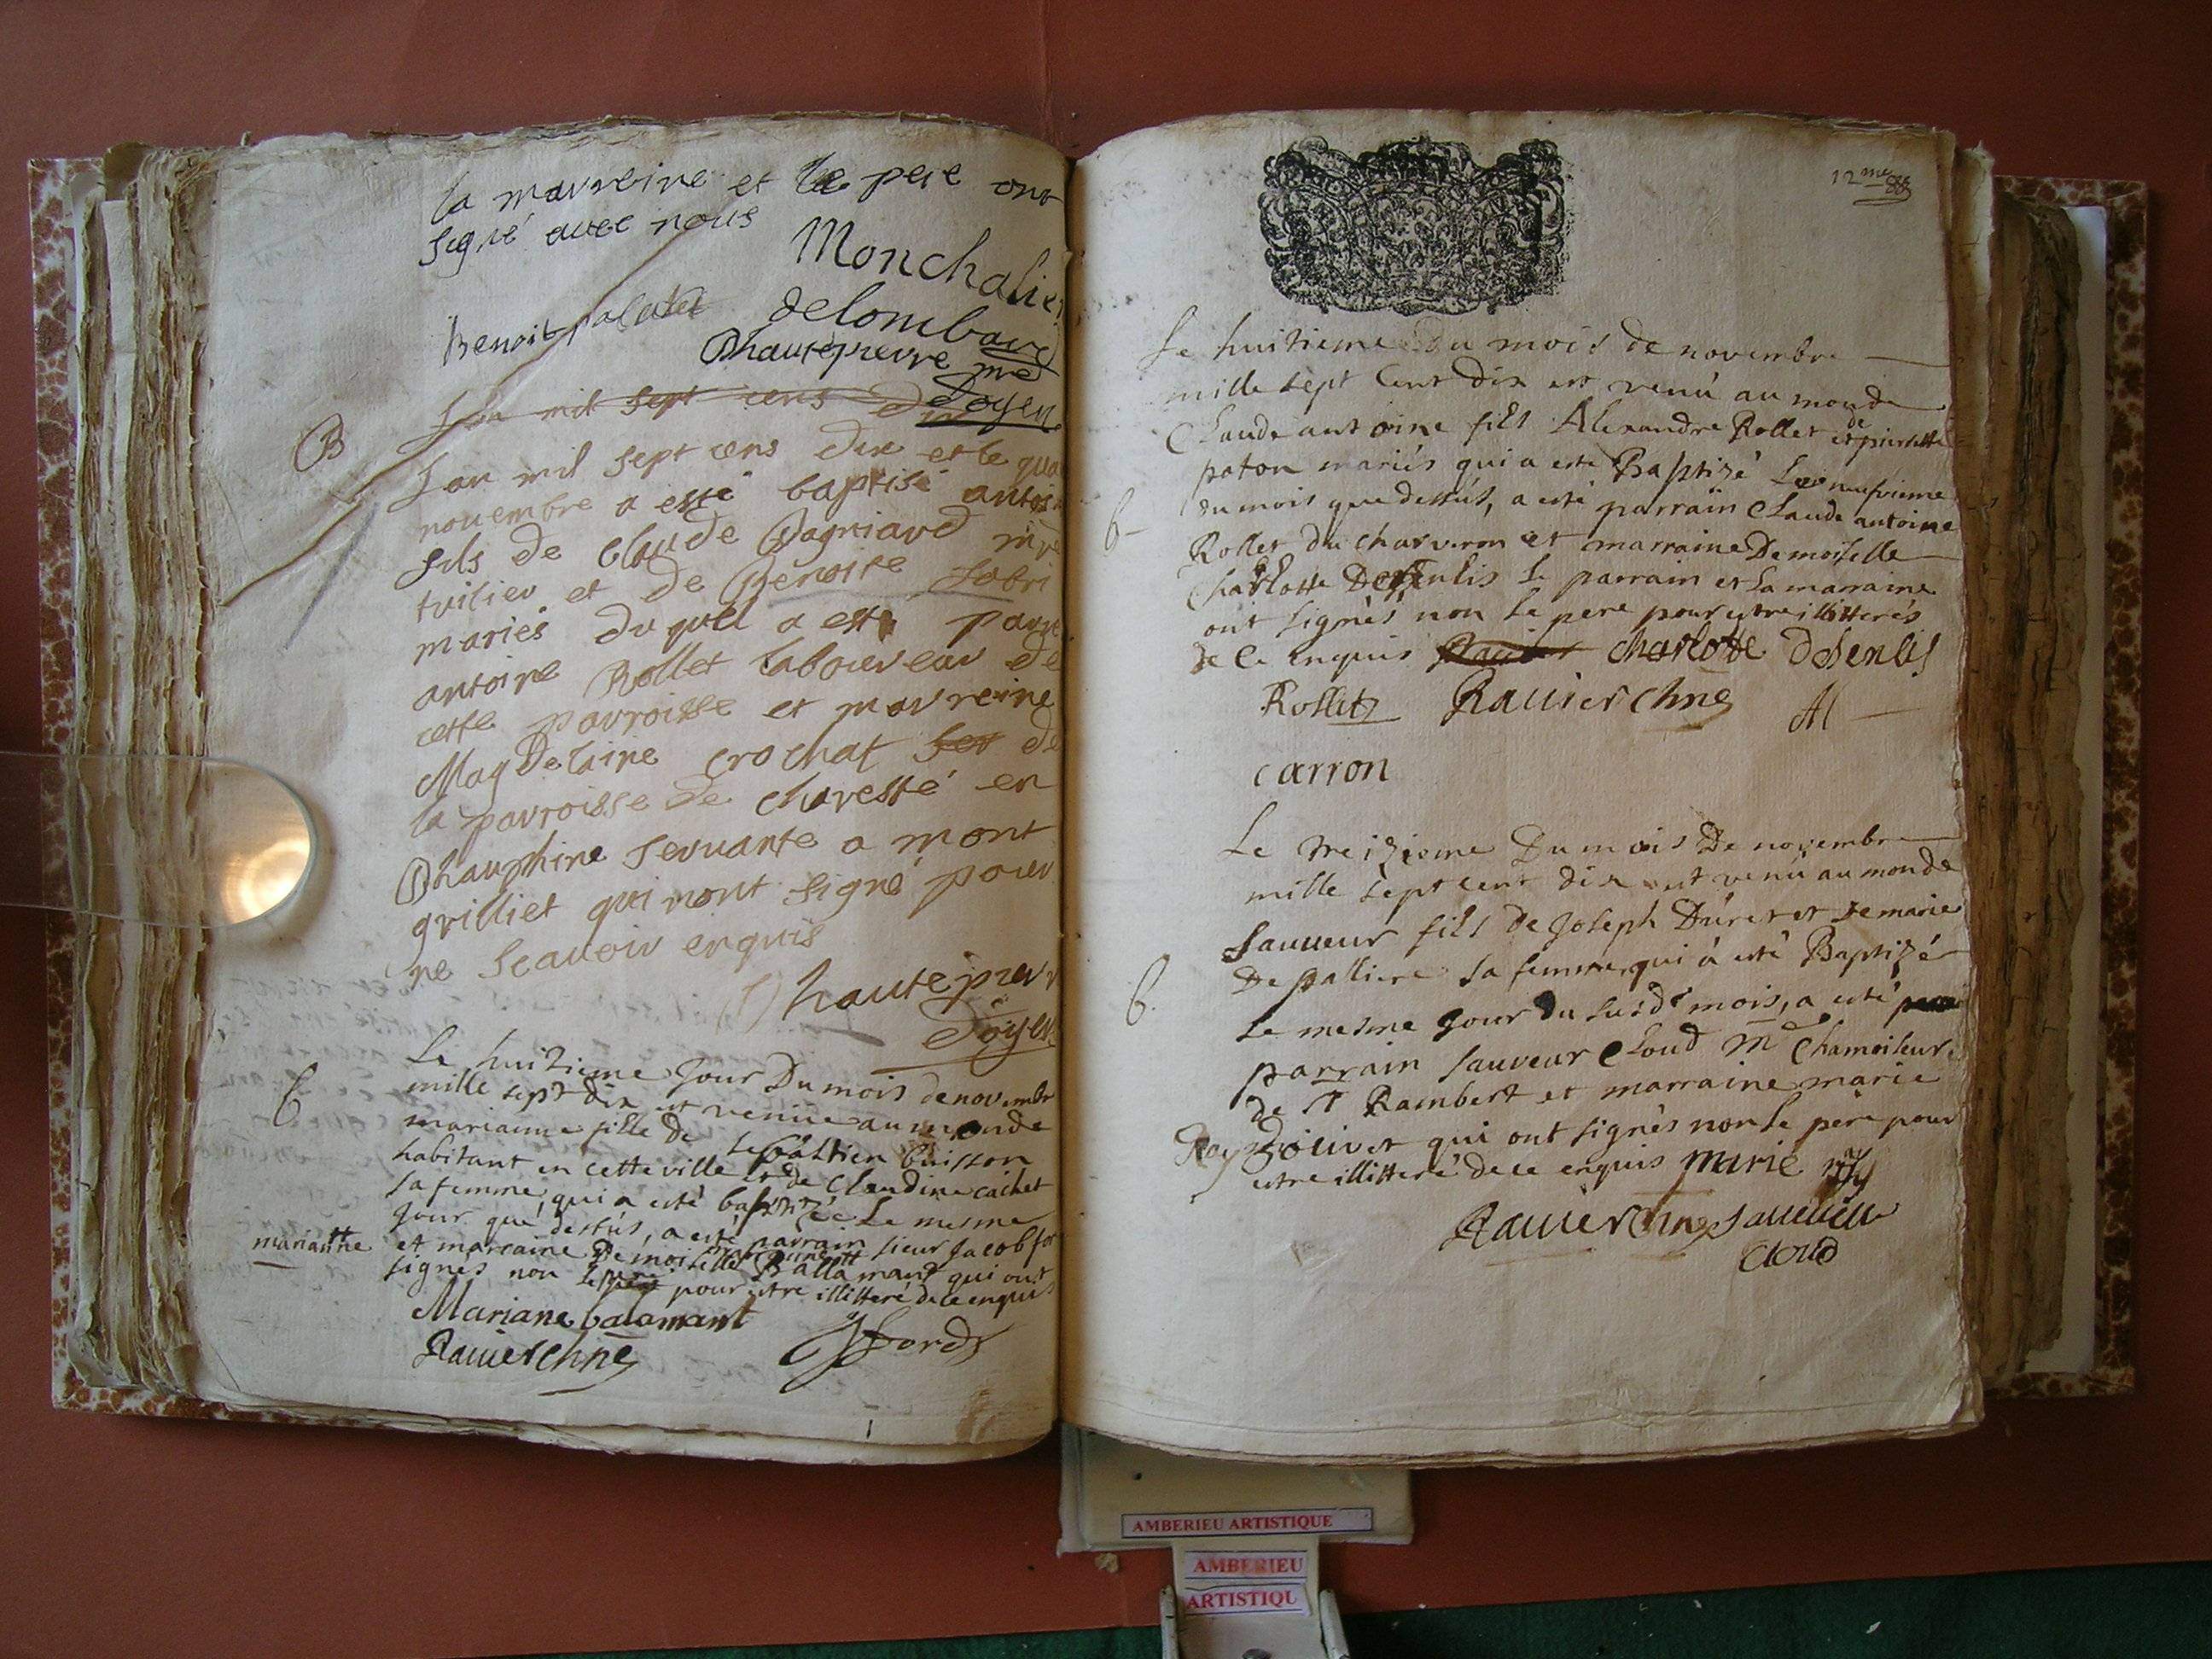 la marreine et le pere ont
signé avec nous
Monchalin
Benoit palatet
delombard
Dhautepierre
Doyen
Lan mil sept cens dix
B
Lan mil sept cens dix et le
novembre a esté baptisé antoi
fils de Claude Dagniard
tuilier et de Benoite Fabri
mariés duquel a esté
antoine Rollet laboureur de
cette parroisse et marreine
Magdelaine crochat de
la parroisse de charesté en
Dhauphine servante a mont
grilliet qui nont signé pour
ne scavoir enquis
Dhautepierr
Doyen
Le huitieme Jour Du mois de novembre
mille sept dix est venue au monde
marianne fille de sebastien buisson
habitant en cette ville et de Claudine cachet
sa femme, qui a esté baptizée Le mesme
Jour que dessus, a esté parrain sieur Jacob for
marianne
et marraine Demoiselle Ballamant qui ont
signes non le pere pour estre illitteré de ce enquis
Mariane balamant
Ravier chne
Jfford
12me
Le huitieme Du mois de novembre
mille sept cent dix est venu au monde
Claude antoine fils Alexandre Rollet et de pierrette
paton mariés qui a esté Baptizé Le neufvieme
du mois que dessus, a esté parrain Claude antoine
6
Rollet du charveron et marraine Demoiselle
Charlotte Desenlis Le parrain et La marraine
ont signés non le pere pour estre illitterés
de Ce enquis Ravier Charlotte Dsenlis
Rollet Ravier Chne
carron
Le treizieme Du mois De novembre
mille sept cent dix est venu au monde
Sauveur fils de Joseph Duret et de marie
De palliere sa femme, qui à esté Baptizé
6.
Le mesme Jour du susdt mois, a esté
parrain sauveur Cloud Me Chamoiseur
de St Rambert et marraine marie
Ray Dolivet qui ont signés non le père pour
estre illitteré de ce enquis marie rey
Ravier chne sauveur
Cloud
AMBERIEU ARTISTIQUE
AMBERIEU
ARTISTIQU